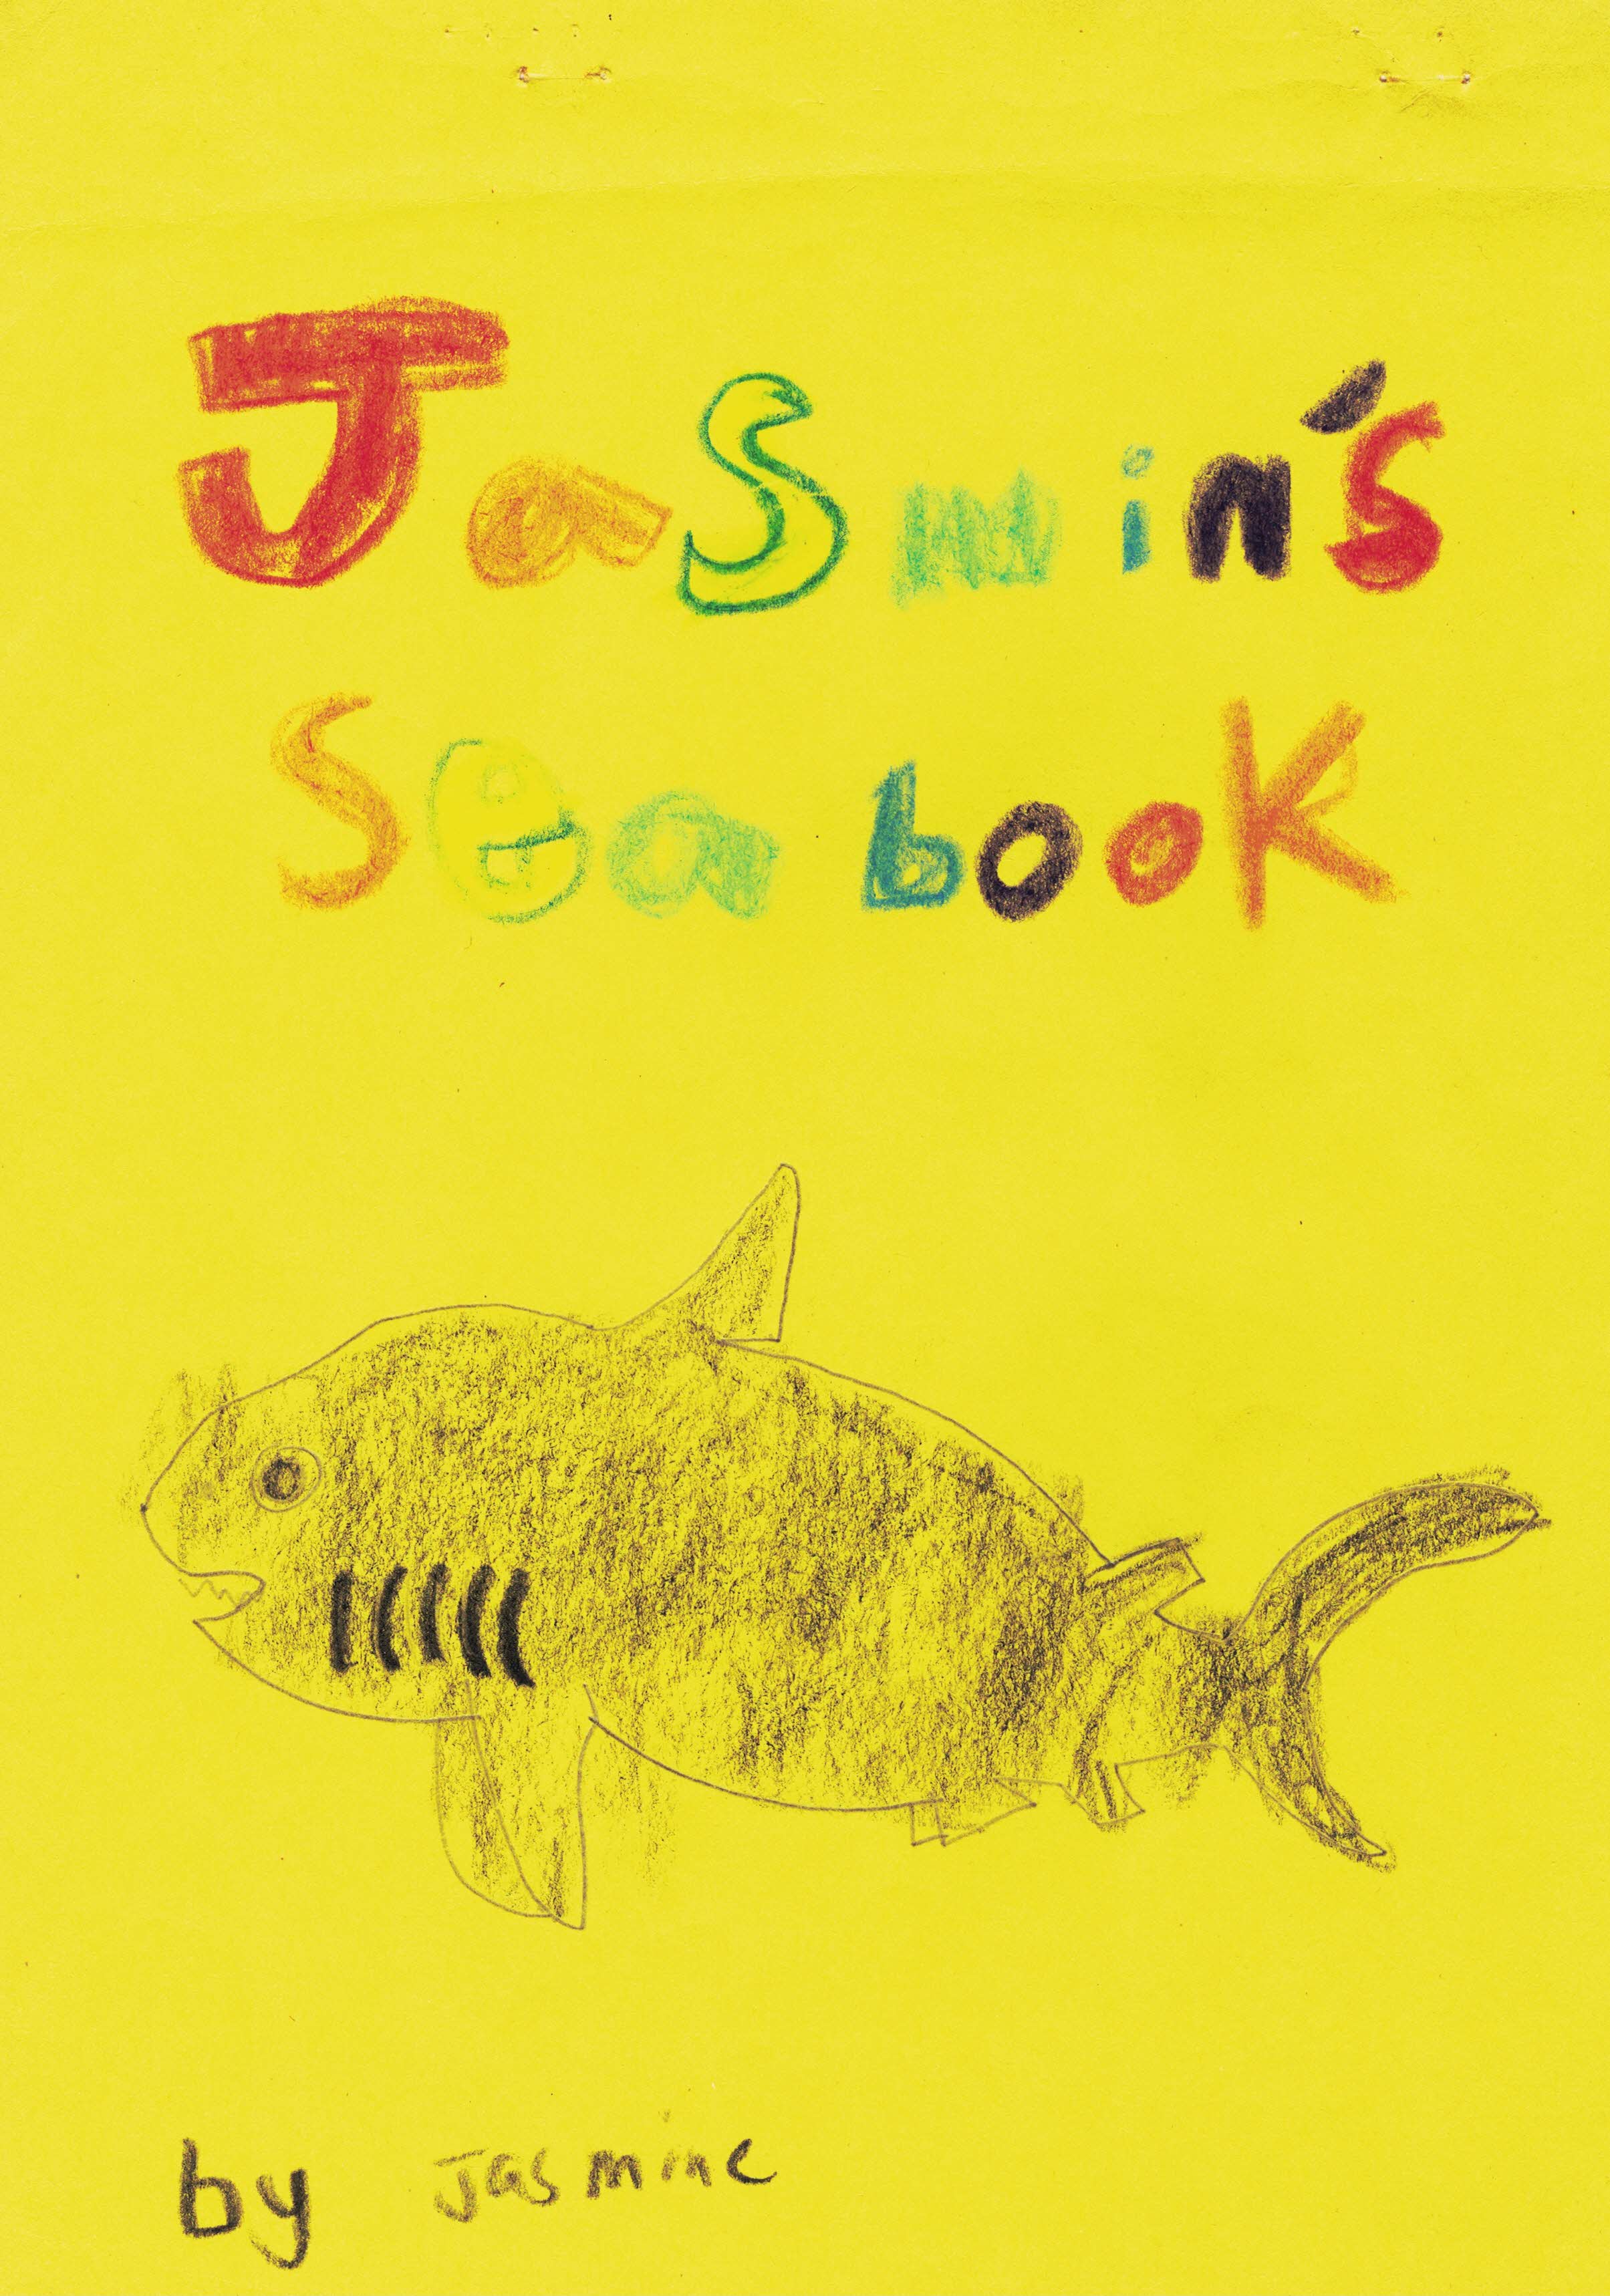 Jasmin's
Sea book
by Jasmine